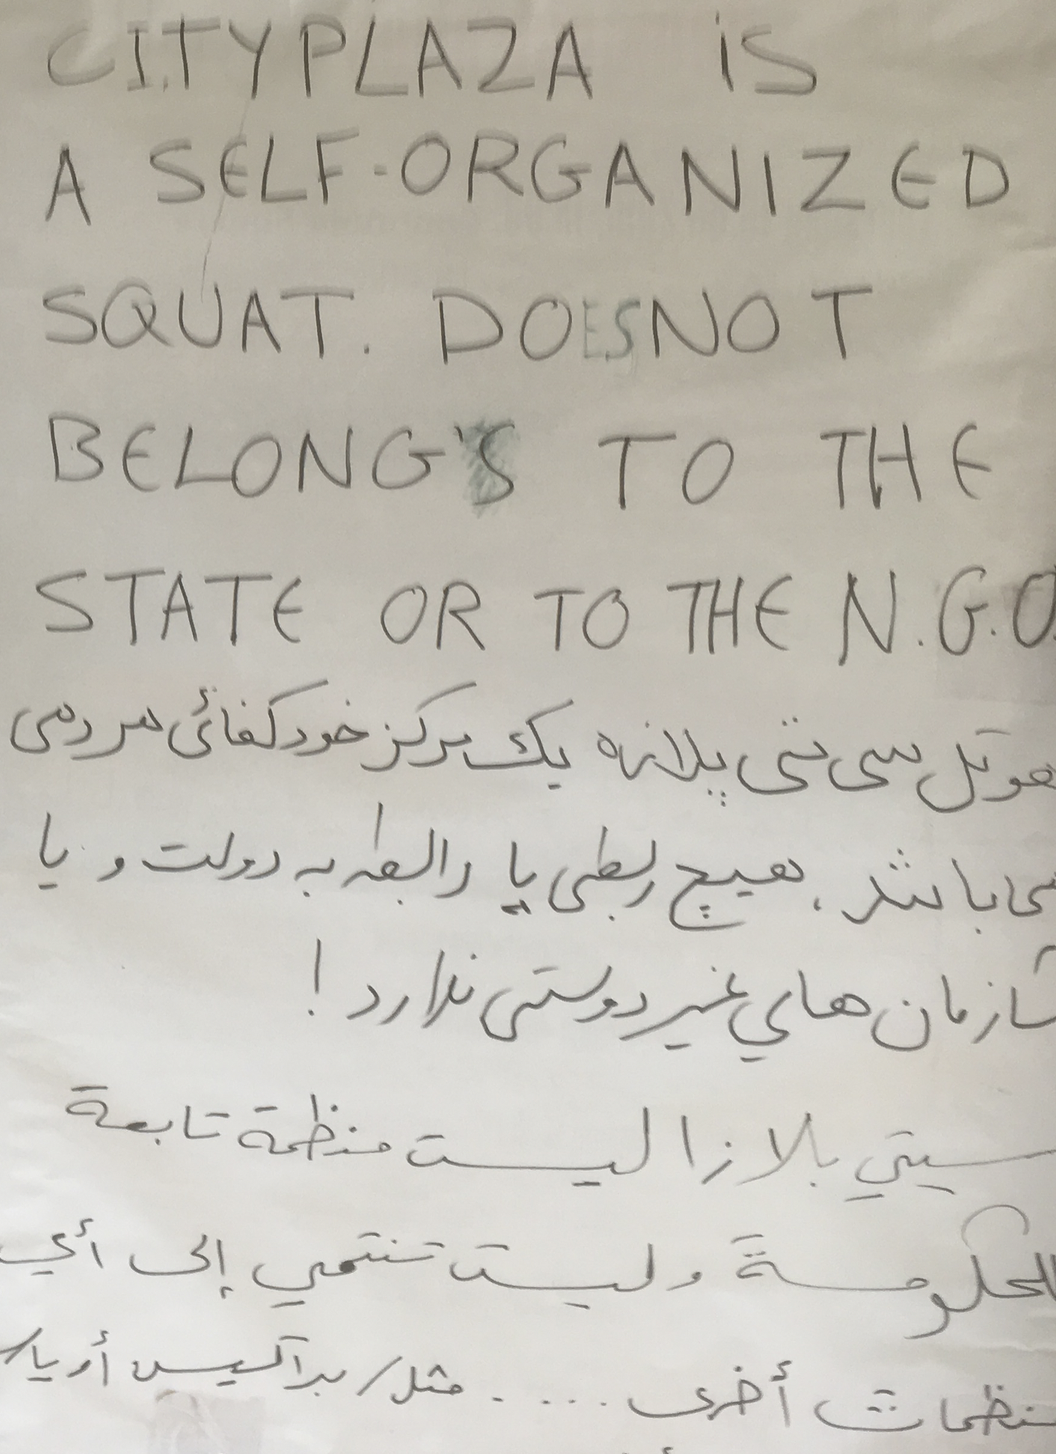 CITY PLAZA iS
A SELF-ORGANIZED
SQUAT. DOESNOT
BELONG'S TO THE
STATE OR TO THE N.G.O.
هوتل سی تی پلازه یک مرکز خودکفائی مردمی
می باشد، هیچ ربطی یا رابطه به دولت و یا
سازمان های غیر دولتی ندارد!
سيتي بلازا ليست منظمة تابعة
للحكومة وليست تنتمي إلى أي
منظمات أخرى .... مثل/ براكسيس أو يا/